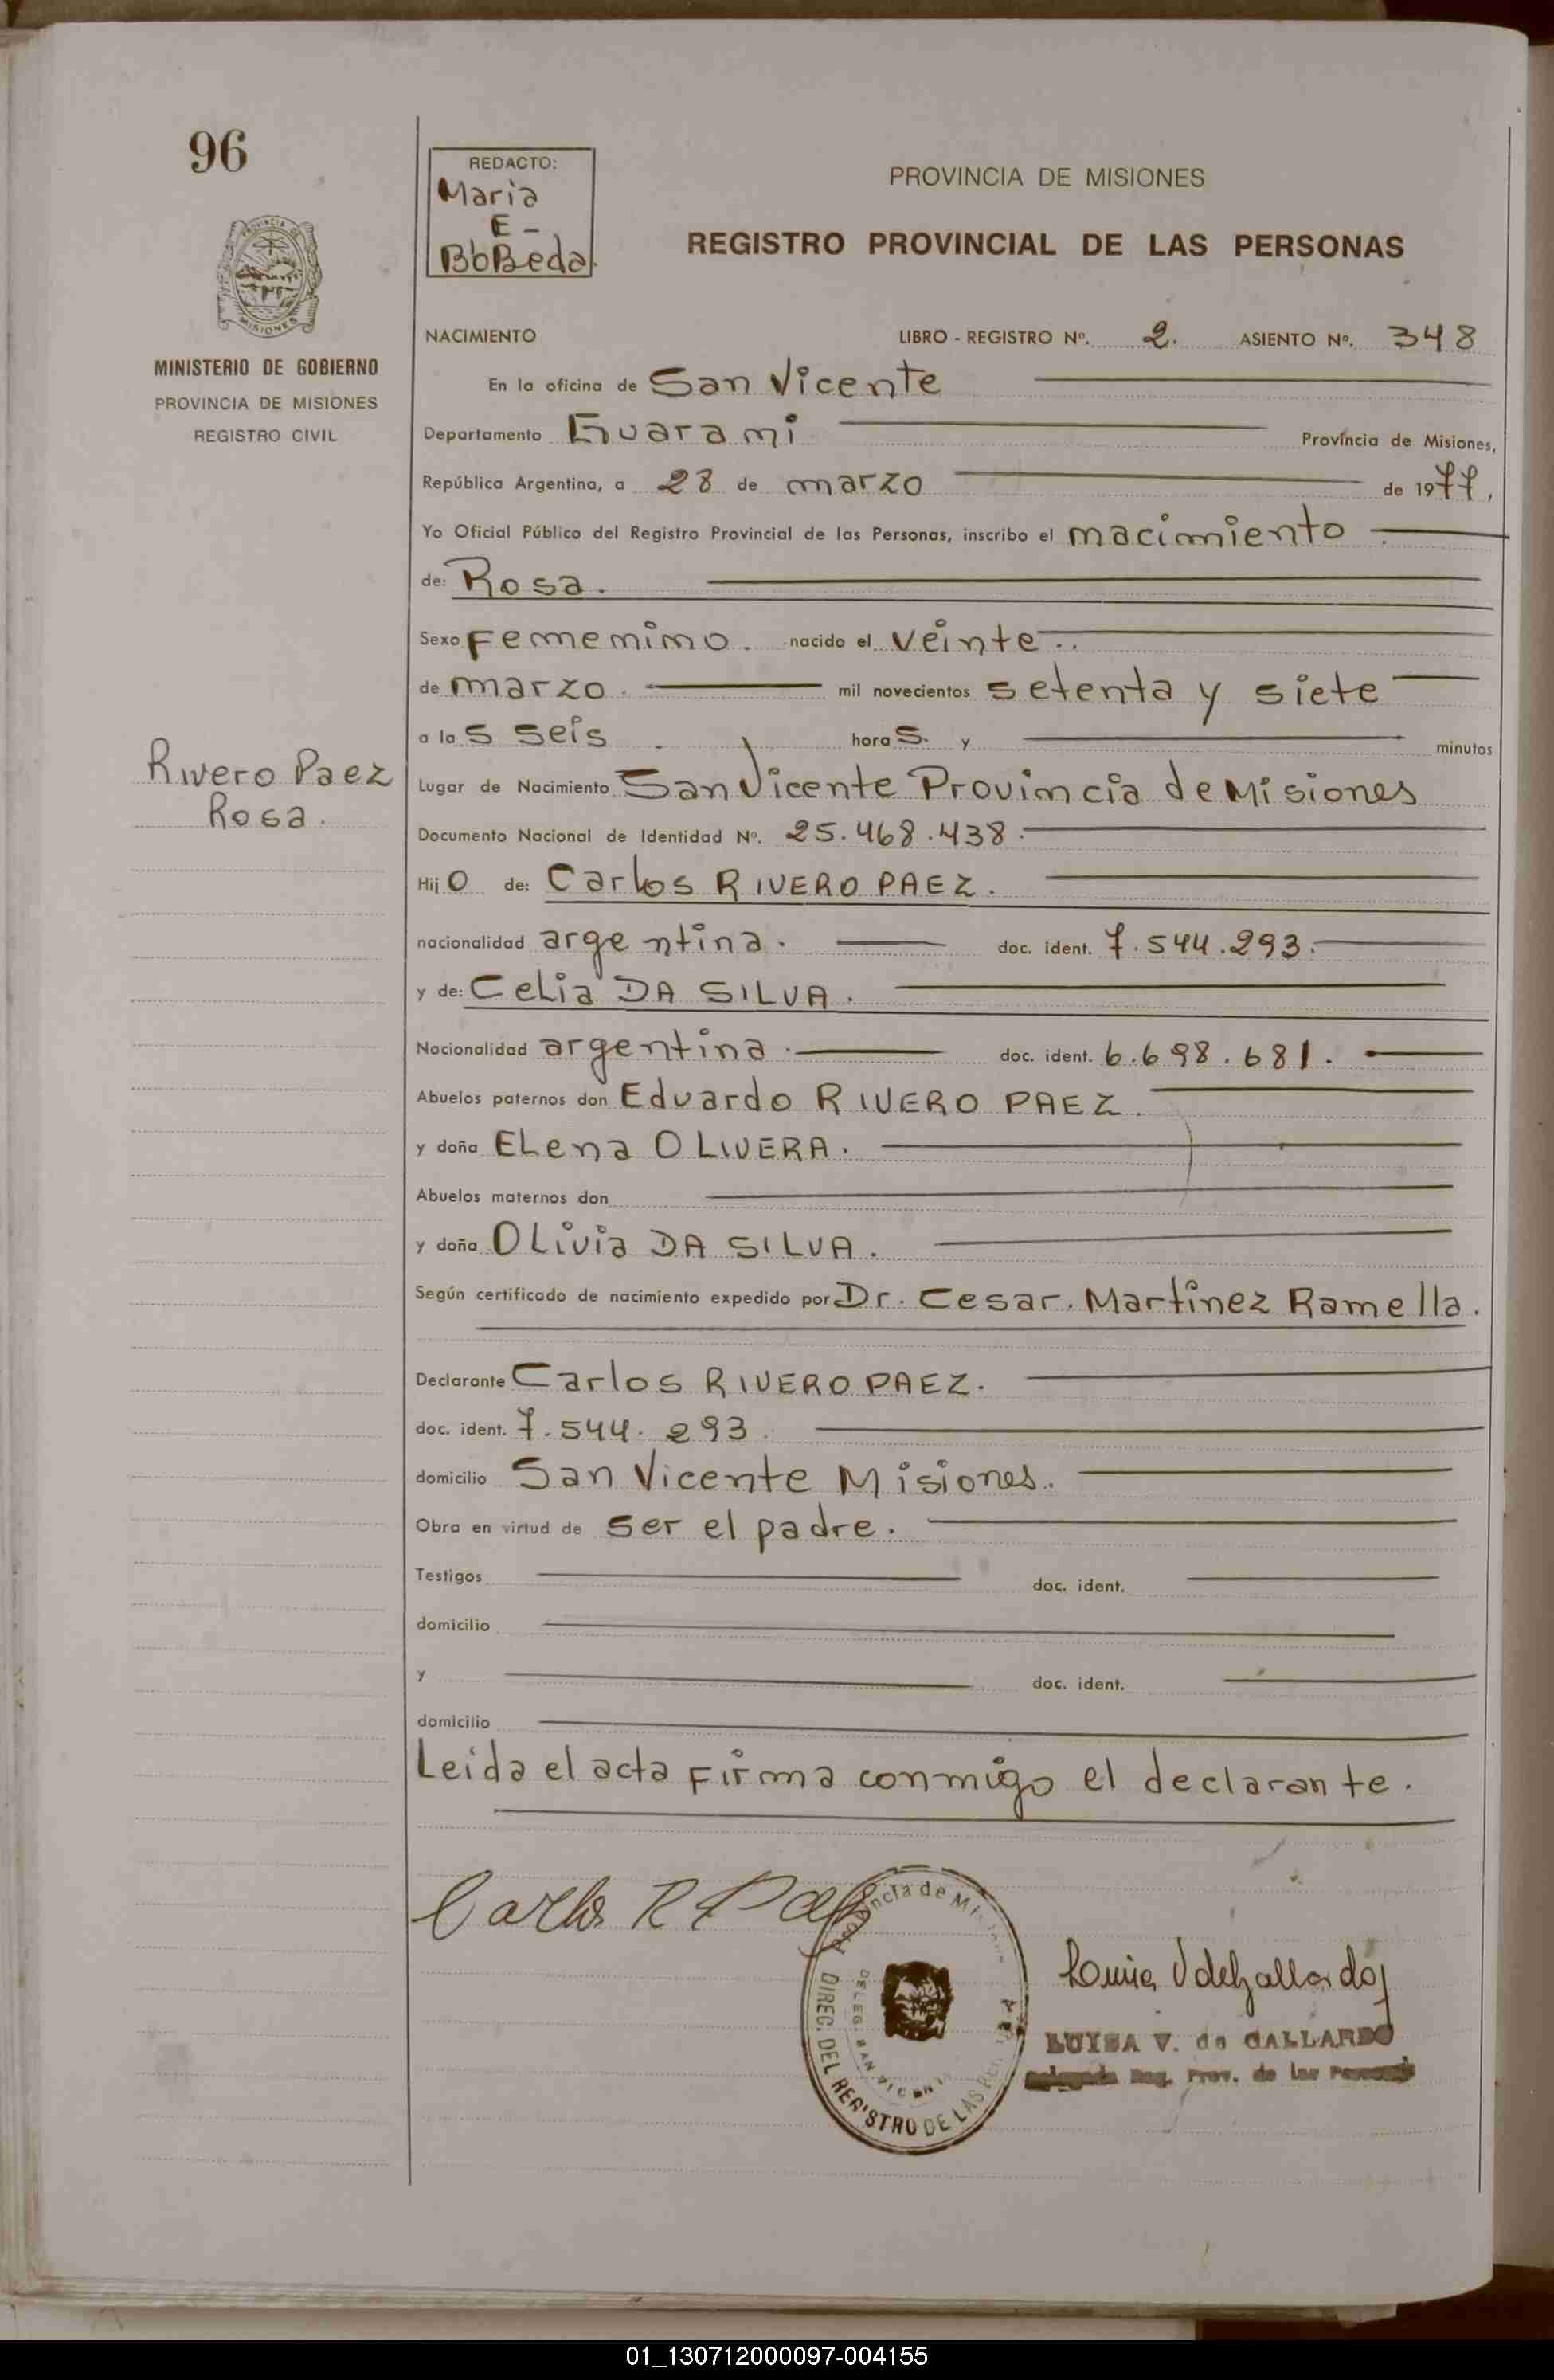 96
REDACTO:
Maria
E-
BbBeda.
PROVINCIA DE MISIONES
REGISTRO PROVINCIAL DE LAS PERSONAS
MINISTERIO DE GOBIERNO
PROVINCIA DE MISIONES
REGISTRO CIVIL
NACIMIENTO LIBRO - REGISTRO Nº. 2. ASIENTO Nº. 348
En la oficina de San Vicente
Departamento Guarami Provincia de Misiones,
República Argentina, a 28 de marzo de 1977,
Yo Oficial Público del Registro Provincial de las Personas, inscribo el nacimiento
de: Rosa.
Sexo Femenino. nacido el veinte..
de marzo. mil novecientos setenta y siete
a las seis horas. y minutos
Rivero Paez
Rosa.
Lugar de Nacimiento San Vicente Provincia de Misiones
Documento Nacional de Identidad Nº. 25.468.438.
Hijo de: Carlos RIVERO PAEZ.
nacionalidad argentina. doc. ident. 7.544.293.
y de: Celia DA SILVA.
Nacionalidad argentina. doc. ident. 6.698.681.
Abuelos paternos don Eduardo RIVERO PAEZ.
y doña Elena OLIVERA.
Abuelos maternos don
y doña Olivia DA SILVA.
Según certificado de nacimiento expedido por Dr. Cesar. Martinez Ramella.
Declarante Carlos RIVERO PAEZ.
doc. ident. 7.544.293.
domicilio San Vicente Misiones.
Obra en virtud de ser el padre.
Testigos doc. ident.
domicilio
y doc. ident.
domicilio
Leida el acta firma conmigo el declarante.
Carlos R
Provincia de Mi
DIREC. DEL REGISTRO DE LAS PER
DELEG. SAN VICENTE
LUISA V. de GALLARDO
Delegada Reg. Prov. de las Personas
01_130712000097-004155